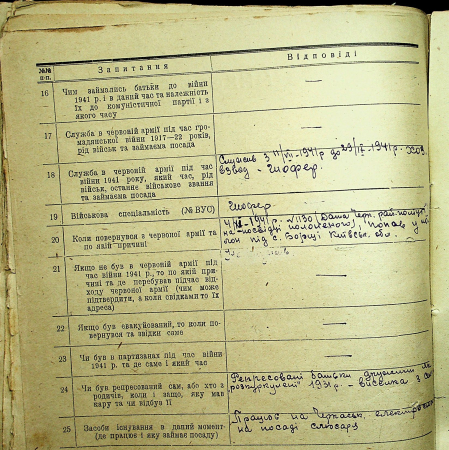 №№ п-п.
Запитання
Відповіді
16
Чим займались батьки до війни
1941 р. і в даний час та належність
їх до комуністичної партії і з
якого часу
17
Служба в червоній армії під час гро-
мадянської війни 1917—22 років,
рід військ та займаема посада
18
Служба в червоній армії під час
війни 1941 року, який час, рід
військ, останнє військове звання
та займаема посада
Служив з 11/VII-1941 р до 29/IX-1941 р. хоз.
взвод - Шофер.
19
Військова спеціальність (№ ВУС)
Шофер.
20
Коли повернувся з червоної армії та
по якій причині
попав у
під с. Борщі Київськ. обл.
21
Якщо не був в червоній армії під
час війни 1941 р., то по якій при-
чині та де перебував підчас від-
ходу червоної армії (чим може
підтвердити, а коли свідками то їх
адреса)
22
Якщо був евакуйований, то коли по-
вернувся та звідки саме
23
Чи був в партизанах під час війни
1941 р. та де саме і який час
24
Чи був репресований сам, або хто з
родичів, коли і защо, яку мав
кару та чи відбув її
Репресовані батьки дружини
1931 р. - висилка з
25
Засоби існування в даний момент
(де працює і яку займає посаду)
Працює на Черкаськ. електро
на посаді слюсаря